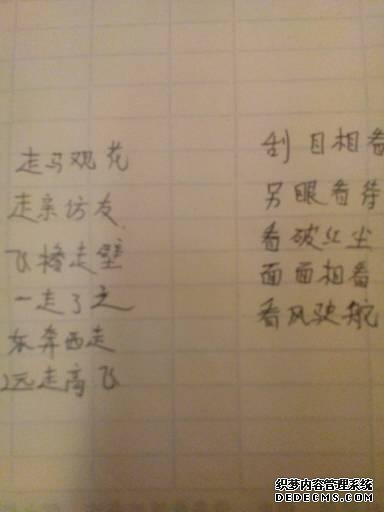 走马观花
走亲访友
飞檐走壁
一走了之
东奔西走
远走高飞
刮目相看
另眼看待
看破红尘
面面相看
看风驶航
织梦内容管理系统
DEDECMS.COM